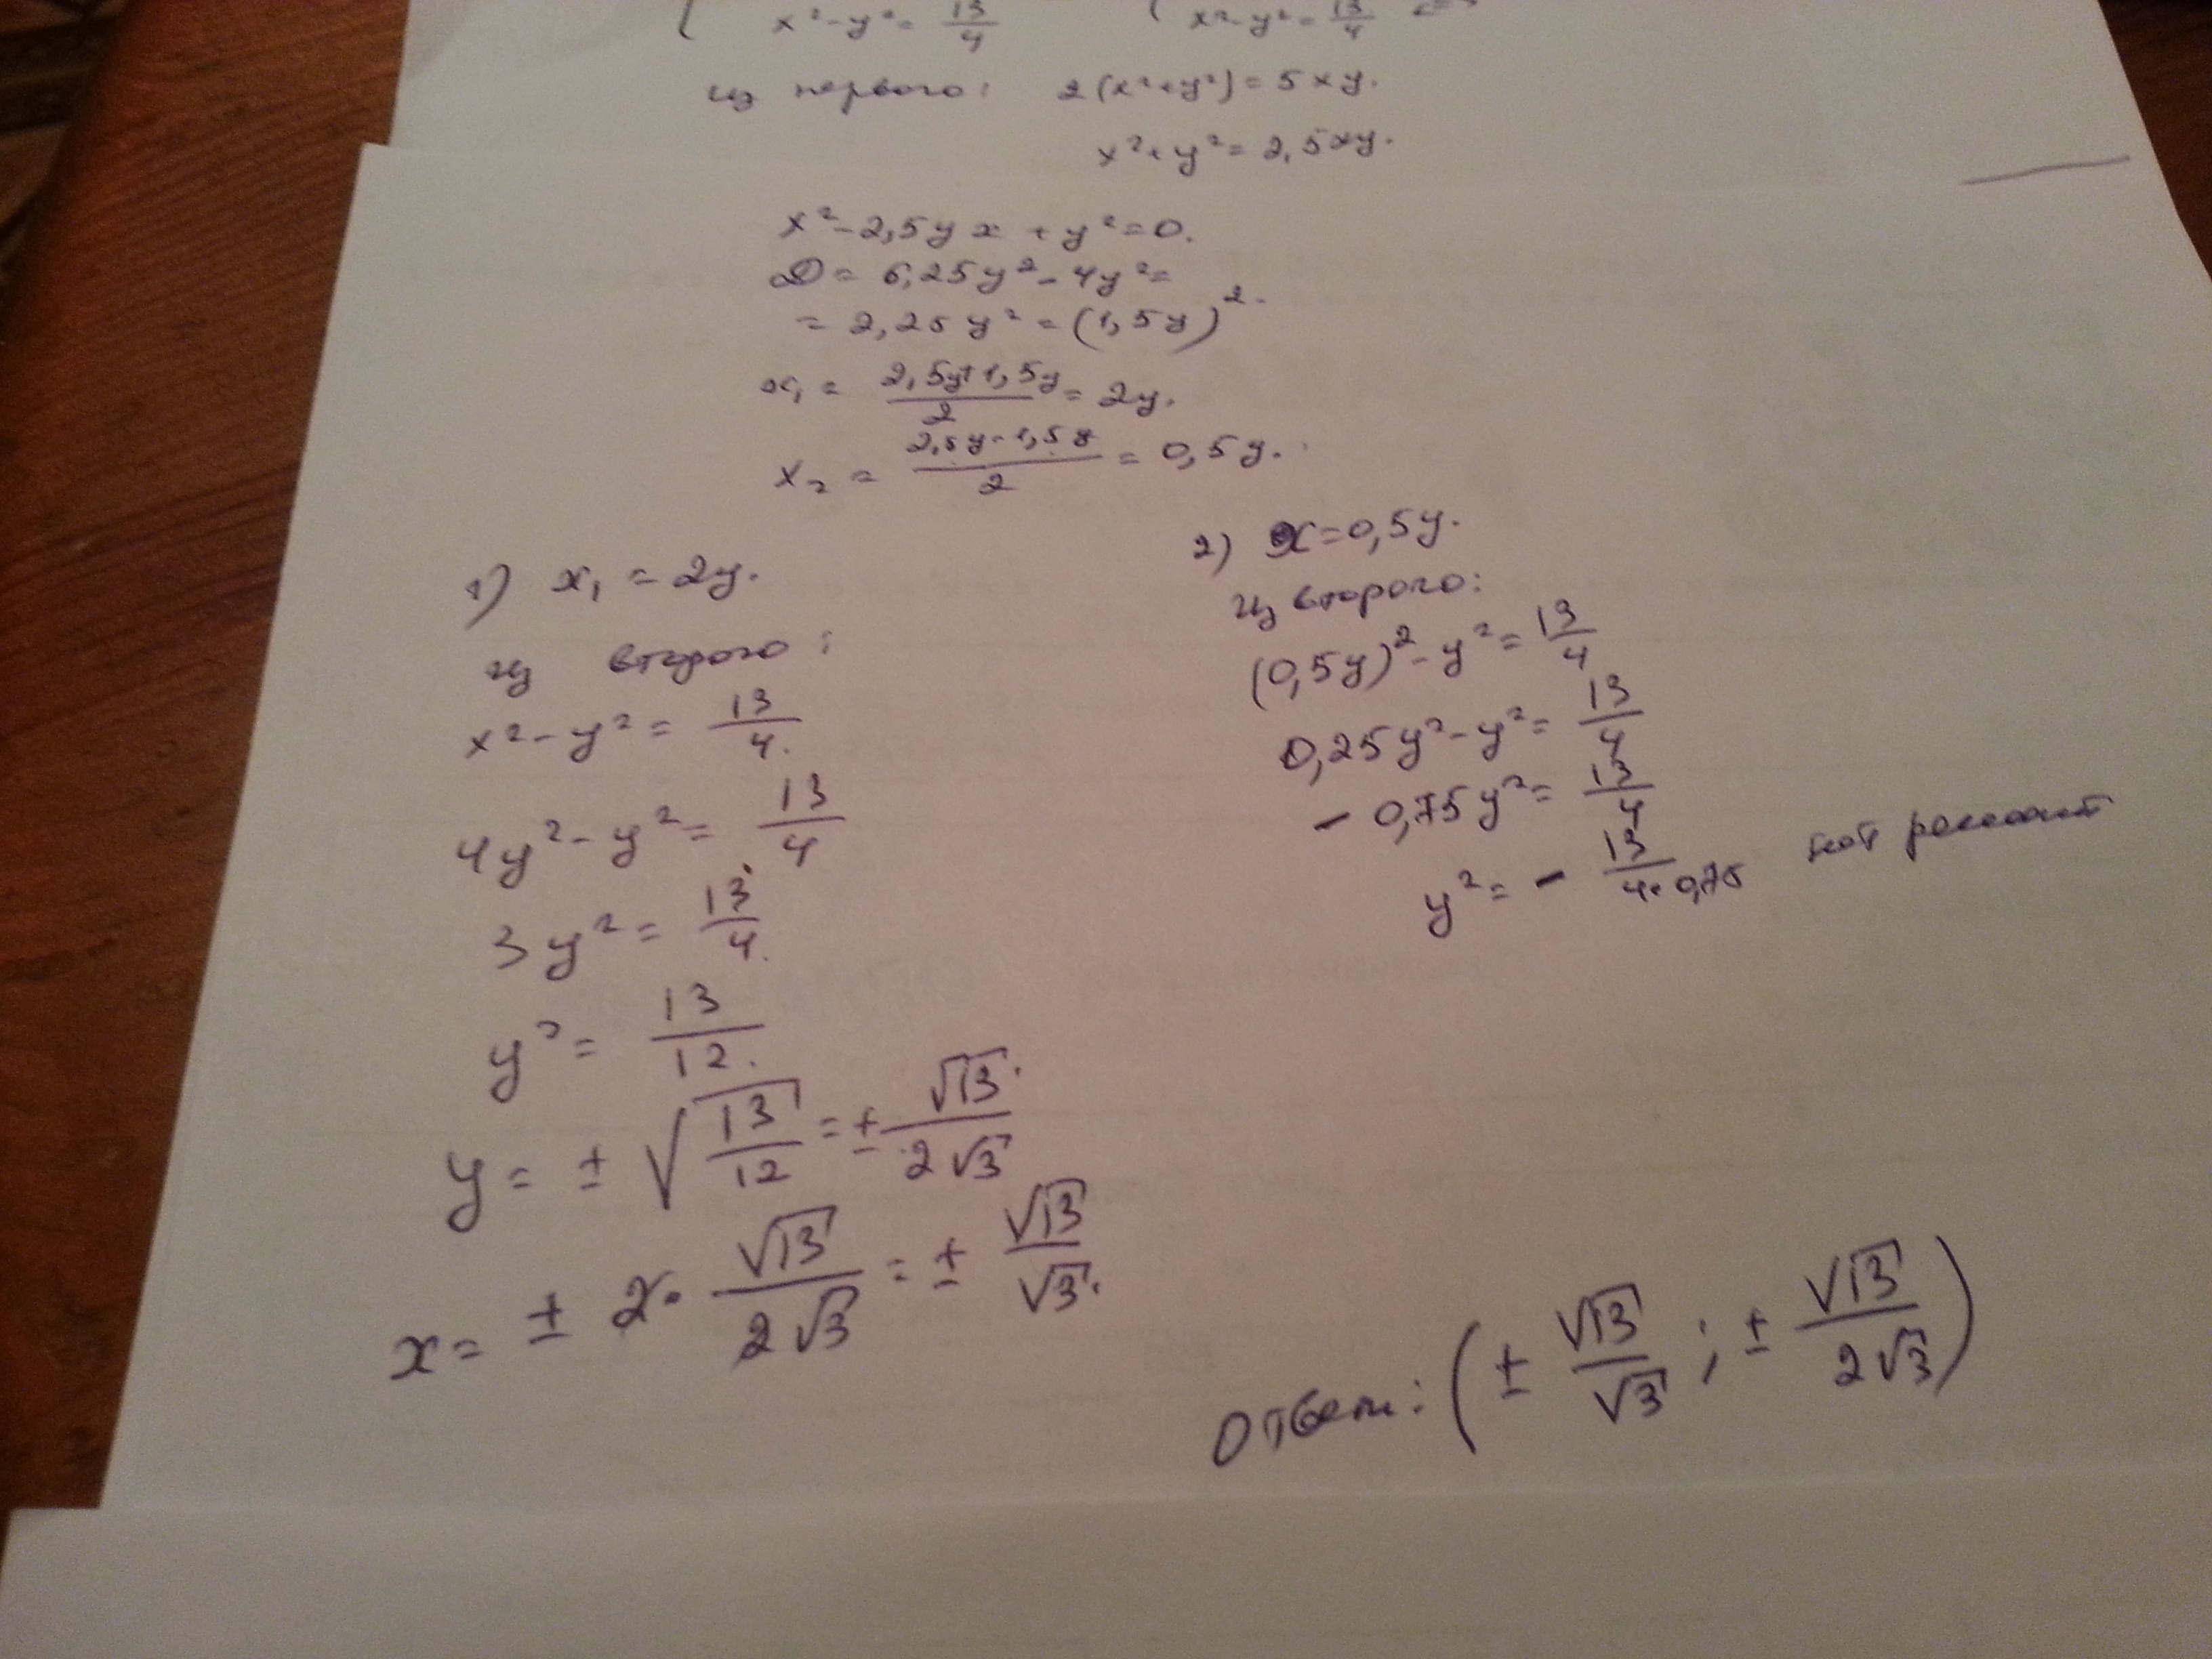 x² - y² = 13/4   x² - y² = 13/4
из первого: 2(x² + y²) = 5xy.
x² + y² = 2,5xy.
x² - 2,5yx + y² = 0.
D = 6,25y² - 4y² =
= 2,25y² = (1,5y)².
x₁ = (2,5y + 1,5y)/2 = 2y.
x₂ = (2,5y - 1,5y)/2 = 0,5y.
1) x₁ = 2y.
из второго:
x² - y² = 13/4.
4y² - y² = 13/4
3y² = 13/4.
y² = 13/12.
y = ± √(13/12) = ± √13/(2√3)
x = ± 2 · √13/(2√3) = ± √13/√3.
2) x = 0,5y.
из второго:
(0,5y)² - y² = 13/4
0,25y² - y² = 13/4
- 0,75y² = 13/4
y² = - 13/(4·0,75) нет решений
Ответ: (± √13/√3 ; ± √13/(2√3))